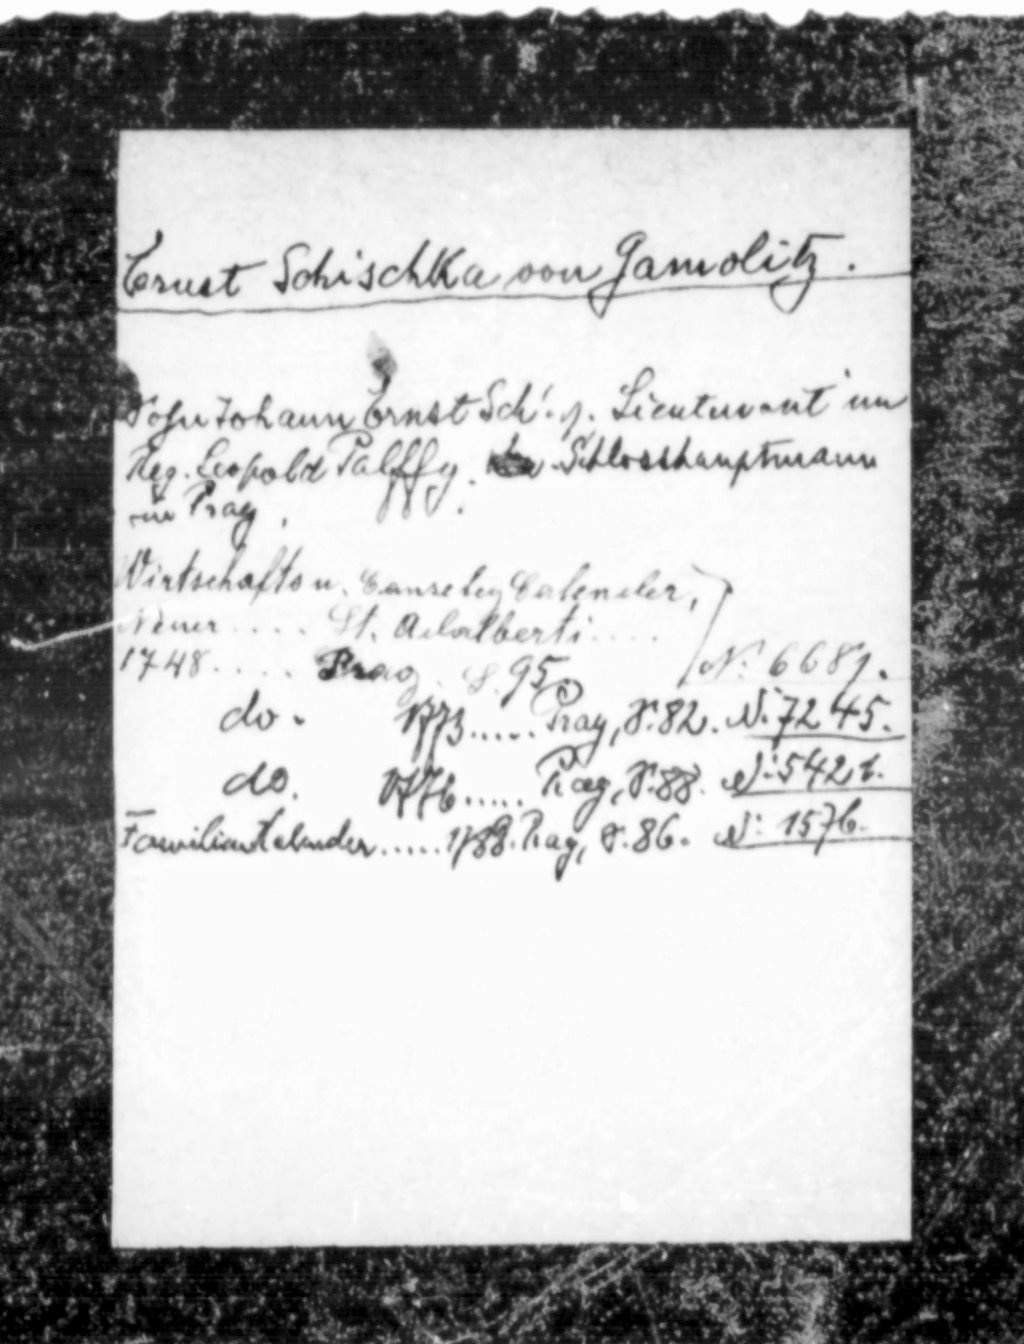 Ernst Schischka von Jamolitz.
Sohn Johann Ernst Sch. j. Lieutenant im
Reg. Leopold Palffy. Schlosshauptmann
in Prag.
Wirtschafts u. Canzeley Calender,
Neuer .... St. Adalberti ....
1748 ..... Prag. S. 95. N: 6689.
do. 1773 ..... Prag, S. 82. N: 7245.
do. 1776 ..... Prag, S. 88. N: 5421.
Familienkalender ..... 1788. Prag, S. 86. N: 1576.